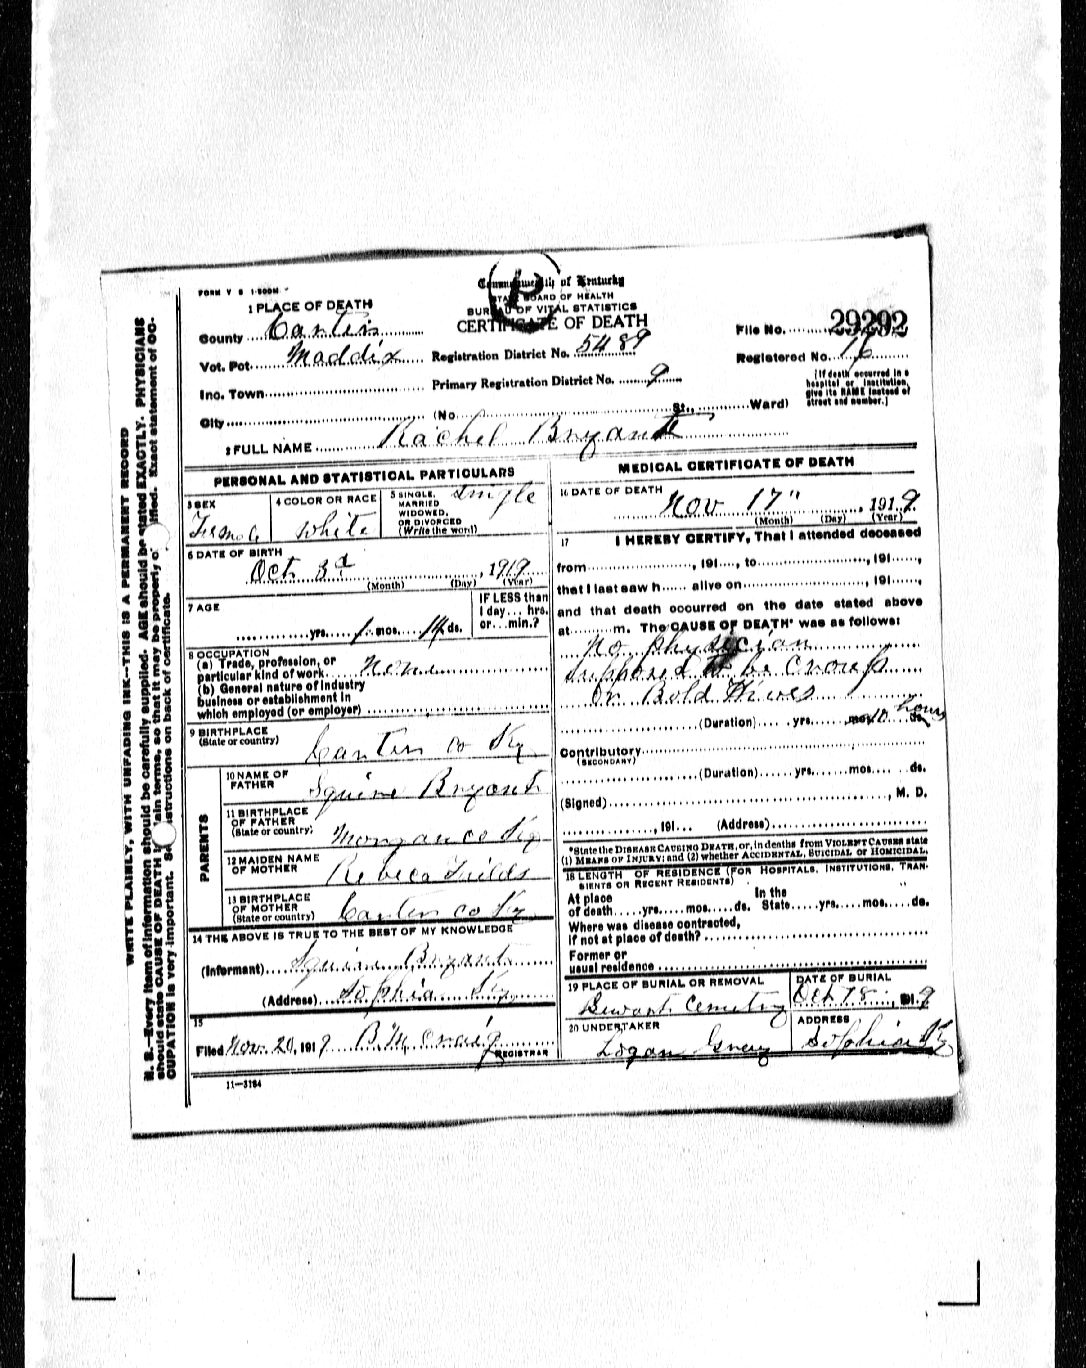 FORM V S 1-500M
Commonwealth of Kentucky
STATE BOARD OF HEALTH
BUREAU OF VITAL STATISTICS
CERTIFICATE OF DEATH
1 PLACE OF DEATH
County Carter
Vot. Pct. Maddix Registration District No. 5489
Inc. Town Primary Registration District No. 9
City (No. St., Ward)
File No. 29292
Registered No. 16
[If death occurred in a
hospital or institution,
give its NAME instead of
street and number.]
2 FULL NAME Rachel Bryant
PERSONAL AND STATISTICAL PARTICULARS
3 SEX
Female
4 COLOR OR RACE
White
5 SINGLE,
MARRIED
WIDOWED,
OR DIVORCED
(Write the word)
Single
6 DATE OF BIRTH
Oct 3d, 1919
(Month) (Day) (Year)
7 AGE
yrs. 1 mos. 14 ds.
IF LESS than
1 day... hrs.
or... min.?
8 OCCUPATION
(a) Trade, profession, or
particular kind of work None
(b) General nature of industry
business or establishment in
which employed (or employer)
9 BIRTHPLACE
(State or country)
Carter co Ky
PARENTS
10 NAME OF
FATHER
Squire Bryant
11 BIRTHPLACE
OF FATHER
(State or country)
Morgan co Ky
12 MAIDEN NAME
OF MOTHER
Rebeca Fields
13 BIRTHPLACE
OF MOTHER
(State or country)
Carter co Ky
14 THE ABOVE IS TRUE TO THE BEST OF MY KNOWLEDGE
(Informant) Squire Bryant
(Address) Sophia Ky
15
Filed Nov. 20, 1919 B M Craig
REGISTRAR
11-3184
MEDICAL CERTIFICATE OF DEATH
16 DATE OF DEATH
Nov 17", 1919
(Month) (Day) (Year)
17 I HEREBY CERTIFY, That I attended deceased
from, 191..., to, 191...,
that I last saw h... alive on, 191...,
and that death occurred on the date stated above
at m. The CAUSE OF DEATH* was as follows:
No physician
Supposed to be Croup
or Bold Hives
(Duration) yrs. mos. 10 ds. hours
Contributory
(SECONDARY)
(Duration) yrs. mos. ds.
(Signed), M. D.
, 191... (Address)
*State the DISEASE CAUSING DEATH, or, in deaths from VIOLENT CAUSES state
(1) MEANS OF INJURY; and (2) whether ACCIDENTAL, SUICIDAL OR HOMICIDAL.
18 LENGTH OF RESIDENCE (FOR HOSPITALS, INSTITUTIONS, TRAN-
SIENTS OR RECENT RESIDENTS)
At place
of death yrs. mos. ds.
In the
State yrs. mos. ds.
Where was disease contracted,
if not at place of death?
Former or
usual residence
19 PLACE OF BURIAL OR REMOVAL
Cemetery
DATE OF BURIAL
Oct 18, 1919
20 UNDERTAKER
Logan
ADDRESS
Sophia Ky
WRITE PLAINLY, WITH UNFADING INK--THIS IS A PERMANENT RECORD
N. B.--Every item of information should be carefully supplied. AGE should be stated EXACTLY. PHYSICIANS
should state CAUSE OF DEATH in plain terms, so that it may be properly classified. Exact statement of OC-
CUPATION is very important. See instructions on back of certificate.